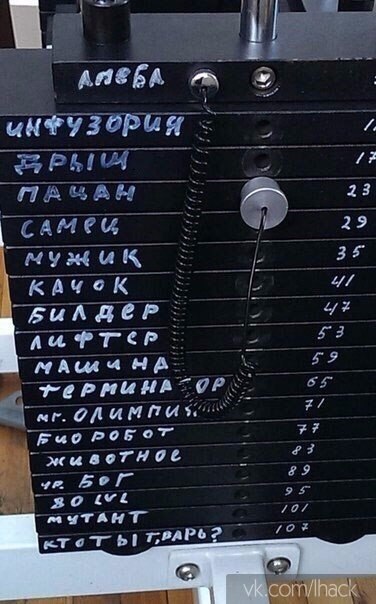 АМЕБА
ИНФУЗОРИЯ
ДРЫЩ 17
ПАЦАН 23
САМЕЦ 29
МУЖИК 35
КАЧОК 41
БИЛДЕР 47
ЛИФТЕР 53
МАШИНА 59
ТЕРМИНАТОР 65
МГ. ОЛИМПИЯ 71
БИОРОБОТ 77
ЖИВОТНОЕ 83
УР. БОГ 89
80 LVL 95
МУТАНТ 101
КТО ТЫ ТВАРЬ? 107
vk.com/lhack